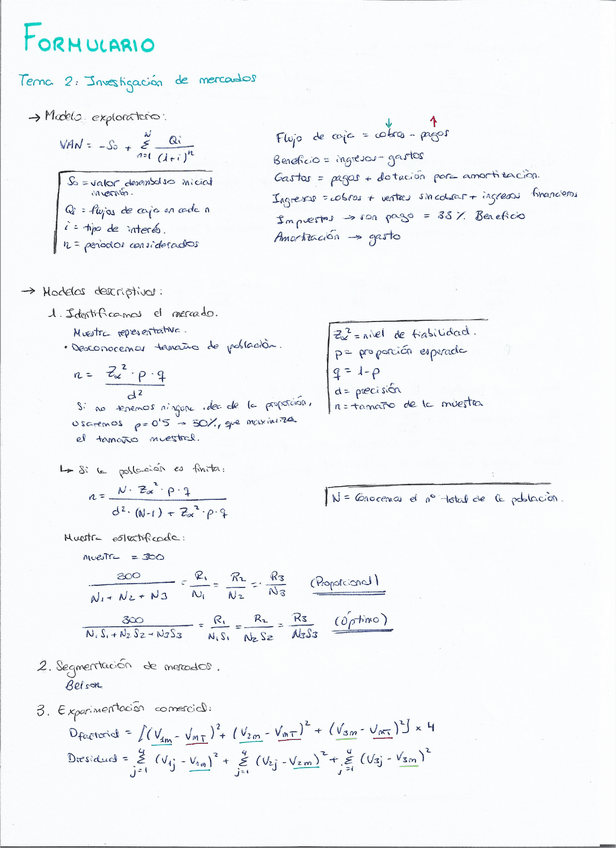 FORMULARIO
Tema 2: Investigación de mercados
→ Modelo exploratorio:
VAN = -So + Σ(n=1, N) Qi / (1+i)^n
So = valor desembolso inicial
inversión.
Qi = flujos de caja en cada n
i = tipo de interés.
n = periodos considerados
↓ ↑
Flujo de caja = cobros - pagos
Beneficio = ingresos - gastos
Gastos = pagos + dotación para amortización.
Ingresos = cobros + ventas sin cobrar + ingresos financieros
Impuestos → son pago = 35% Beneficio
Amortización → gasto
→ Modelos descriptivos:
1. Identificamos el mercado.
Muestra representativa.
· Desconocemos tamaño de población.
n = Zα² · p · q / d²
Si no tenemos ninguna idea de la proporción,
usaremos p = 0'5 → 50%, que maximiza
el tamaño muestral.
Zα² = nivel de fiabilidad.
p = proporción esperada
q = 1 - p
d = precisión
n = tamaño de la muestra
↳ Si la población es finita:
n = N · Zα² · p · q / d² · (N-1) + Zα² · p · q
N = Conocemos el nº total de la población.
Muestra estratificada:
muestra = 300
300 / N1 + N2 + N3 = R1 / N1 = R2 / N2 = R3 / N3 (Proporcional)
300 / N1S1 + N2S2 + N3S3 = R1 / N1S1 = R2 / N2S2 = R3 / N3S3 (Óptimo)
2. Segmentación de mercados.
Belson
3. Experimentación comercial:
Dfactorial = [(V1m - VmT)² + (V2m - VmT)² + (V3m - VmT)²] × 4
Dresidual = Σ(j=1, 4) (V1j - V1m)² + Σ(j=1, 4) (V2j - V2m)² + Σ(j=1, 4) (V3j - V3m)²